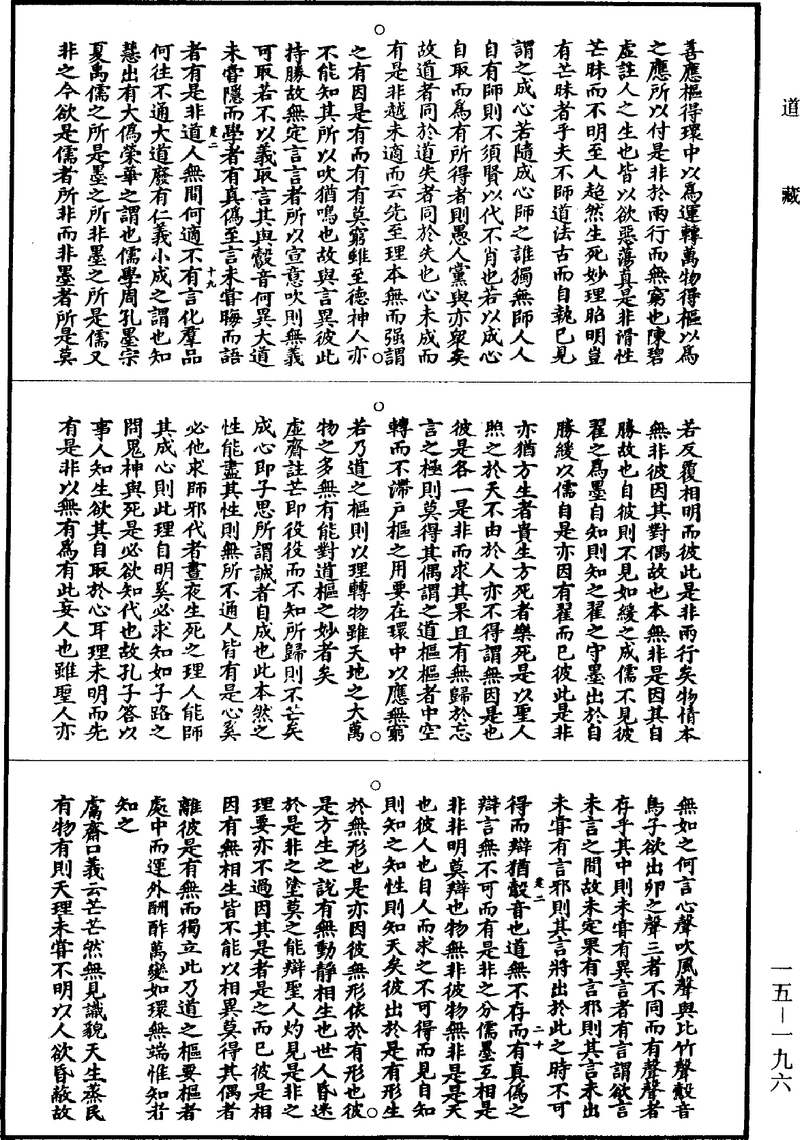 道藏
善應樞得環中以為運轉萬物得樞以為
之應所以付是非於兩行而無窮也陳碧
虛註人之生也皆以欲惡蕩真是非滑性
芒昧而不明至人超然生死妙理昭明豈
有芒昧者乎夫不師道法古而自執已見
謂之成心若隨成心師之誰獨無師人人
自有師則不須賢以代不肖也若以成心
自取而為有所得者則愚人黨與亦衆矣
故道者同於道失者同於失也心未成而
有是非越未適而云先至理本無而强謂
之有因是有而有有莫窮雖至德神人亦
不能知其所以吹猶鳴也故與言異彼此
持勝故無定言言者所以宣意吹則無義
可取若不以義取言其與鷇音何異大道
未甞隱而學者有真偽至言未甞晦而語
者有是非道人無間何適不有言化羣品
何往不通大道廢有仁義小成之謂也知
慧出有大偽榮華之謂也儒學周孔墨宗
夏禹儒之所是墨之所非墨之所是儒又
非之今欲是儒者所非而非墨者所是莫
若反覆相明而彼此是非兩行矣物情本
無非彼因其對偶故也本無非是因其自
勝故也自彼則不見如緩之成儒不見彼
翟之為墨自知則知之翟之守墨出於自
勝緩以儒自是亦因有翟而已彼此是非
亦猶方生者貴生方死者樂死是以聖人
照之於天不由於人亦不得謂無因是也
彼是各一是非而求其果且有無歸於忘
言之極則莫得其偶謂之道樞樞者中空
轉而不滯戶樞之用要在環中以應無窮
若乃道之樞則以理轉物雖天地之大萬
物之多無有能對道樞之妙者矣
虛齋註芒即役役而不知所歸則不芒矣
成心即子思所謂誠者自成也此本然之
性能盡其性則無所不通人皆有是心奚
必他求師邪代者晝夜生死之理人能師
其成心則此理自明奚必求知如子路之
問鬼神與死是必欲知代也故孔子答以
事人知生欲其自取於心耳理未明而先
有是非以無有為有此妄人也雖聖人亦
無如之何言心聲吹風聲與比竹聲鷇音
鳥子欲出卵之聲三者不同而有聲聲者
存乎其中則未甞有異言者有言謂欲言
未言之間故未定果有言邪則其言未出
未甞有言邪則其言將出於此之時不可
得而辯猶鷇音也道無不存而有真偽之
辯言無不可而有是非之分儒墨互相是
非非明莫辯也物無非彼物無非是是天
也彼人也自人而求之不可得而見自知
則知之知性則知天矣彼出於是有形生
於無形也是亦因彼無形依於有形也彼
是方生之說有無動靜相生也世人昏迷
於是非之塗莫之能辯聖人灼見是非之
理要亦不過因其是者是之而已彼是相
因有無相生皆不能以相異莫得其偶者
離彼是有無而獨立此乃道之樞要樞者
處中而運外酬酢萬變如環無端惟知者
知之
鬳齋口義云芒芒然無見識貌天生蒸民
有物有則天理未甞不明以人欲昏蔽故
一五—一九六